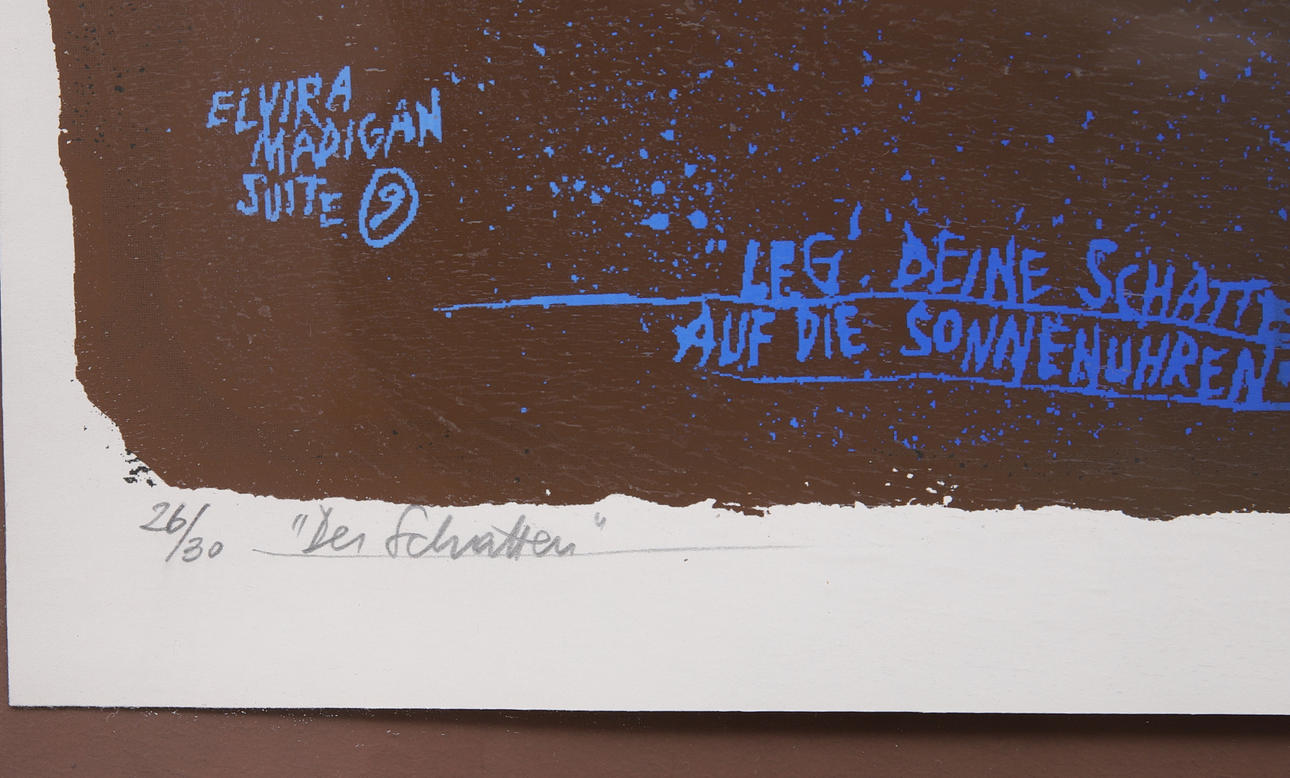 ELVIRA
MADIGAN
SUITE 9
"LEG' DEINE SCHATTE
AUF DIE SONNENUHREN"
26/30 "Der Schatten"